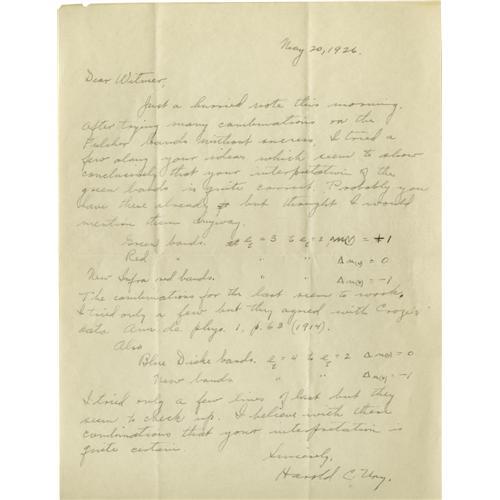 May 20, 1926.
Dear Witmer,
Just a hurried note this morning.
After trying many combinations on the
Fulcher bands without success, I tried a
few along your ideas which seem to show
conclusively that your interpretation of the
green bands is quite correct. Probably you
have these already but thought I would
mention them anyway.
Green bands. = 3 to = 2, = +1
Red " " " Δ m(r) = 0
New Infra red bands. " " Δ m(r) = -1
The combinations for the last seem to work.
I tried only a few but they agreed with Croze's
data Ann de phys. 1, p. 63 (1914).
Also
Blue Dieke bands. = 4 to = 2 Δ m(r) = 0
New bands " " Δ m(r) = -1
I tried only a few lines of last but they
seem to check up. I believe with these
combinations that your interpretation is
quite certain.
Sincerely,
Harold C. Urey.